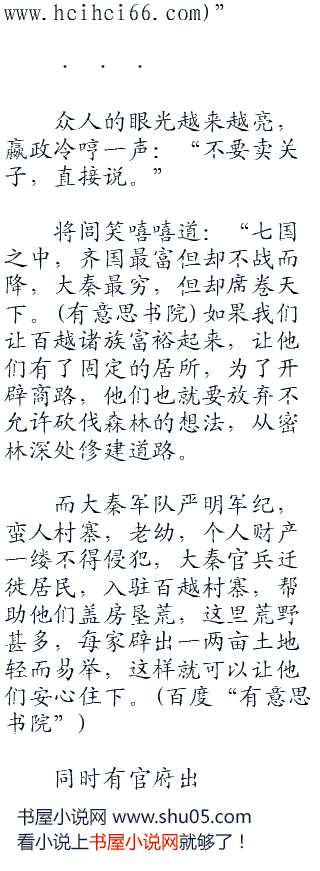 www.hcihci66.com)”
· · ·
众人的眼光越来越亮，
嬴政冷哼一声：“不要卖关
子，直接说。”
将闾笑嘻嘻道：“七国
之中，齐国最富但却不战而
降，大秦最穷，但却席卷天
下。(有意思书院)如果我们
让百越诸族富裕起来，让他
们有了固定的居所，为了开
辟商路，他们也就要放弃不
允许砍伐森林的想法，从密
林深处修建道路。
而大秦军队严明军纪，
蛮人村寨，老幼，个人财产
一缕不得侵犯，大秦官兵迁
徙居民，入驻百越村寨，帮
助他们盖房垦荒，这里荒野
甚多，每家辟出一两亩土地
轻而易举，这样就可以让他
们安心住下。(百度“有意思
书院”)
同时有官府出
书屋小说网 www.shu05.com
看小说上书屋小说网就够了！